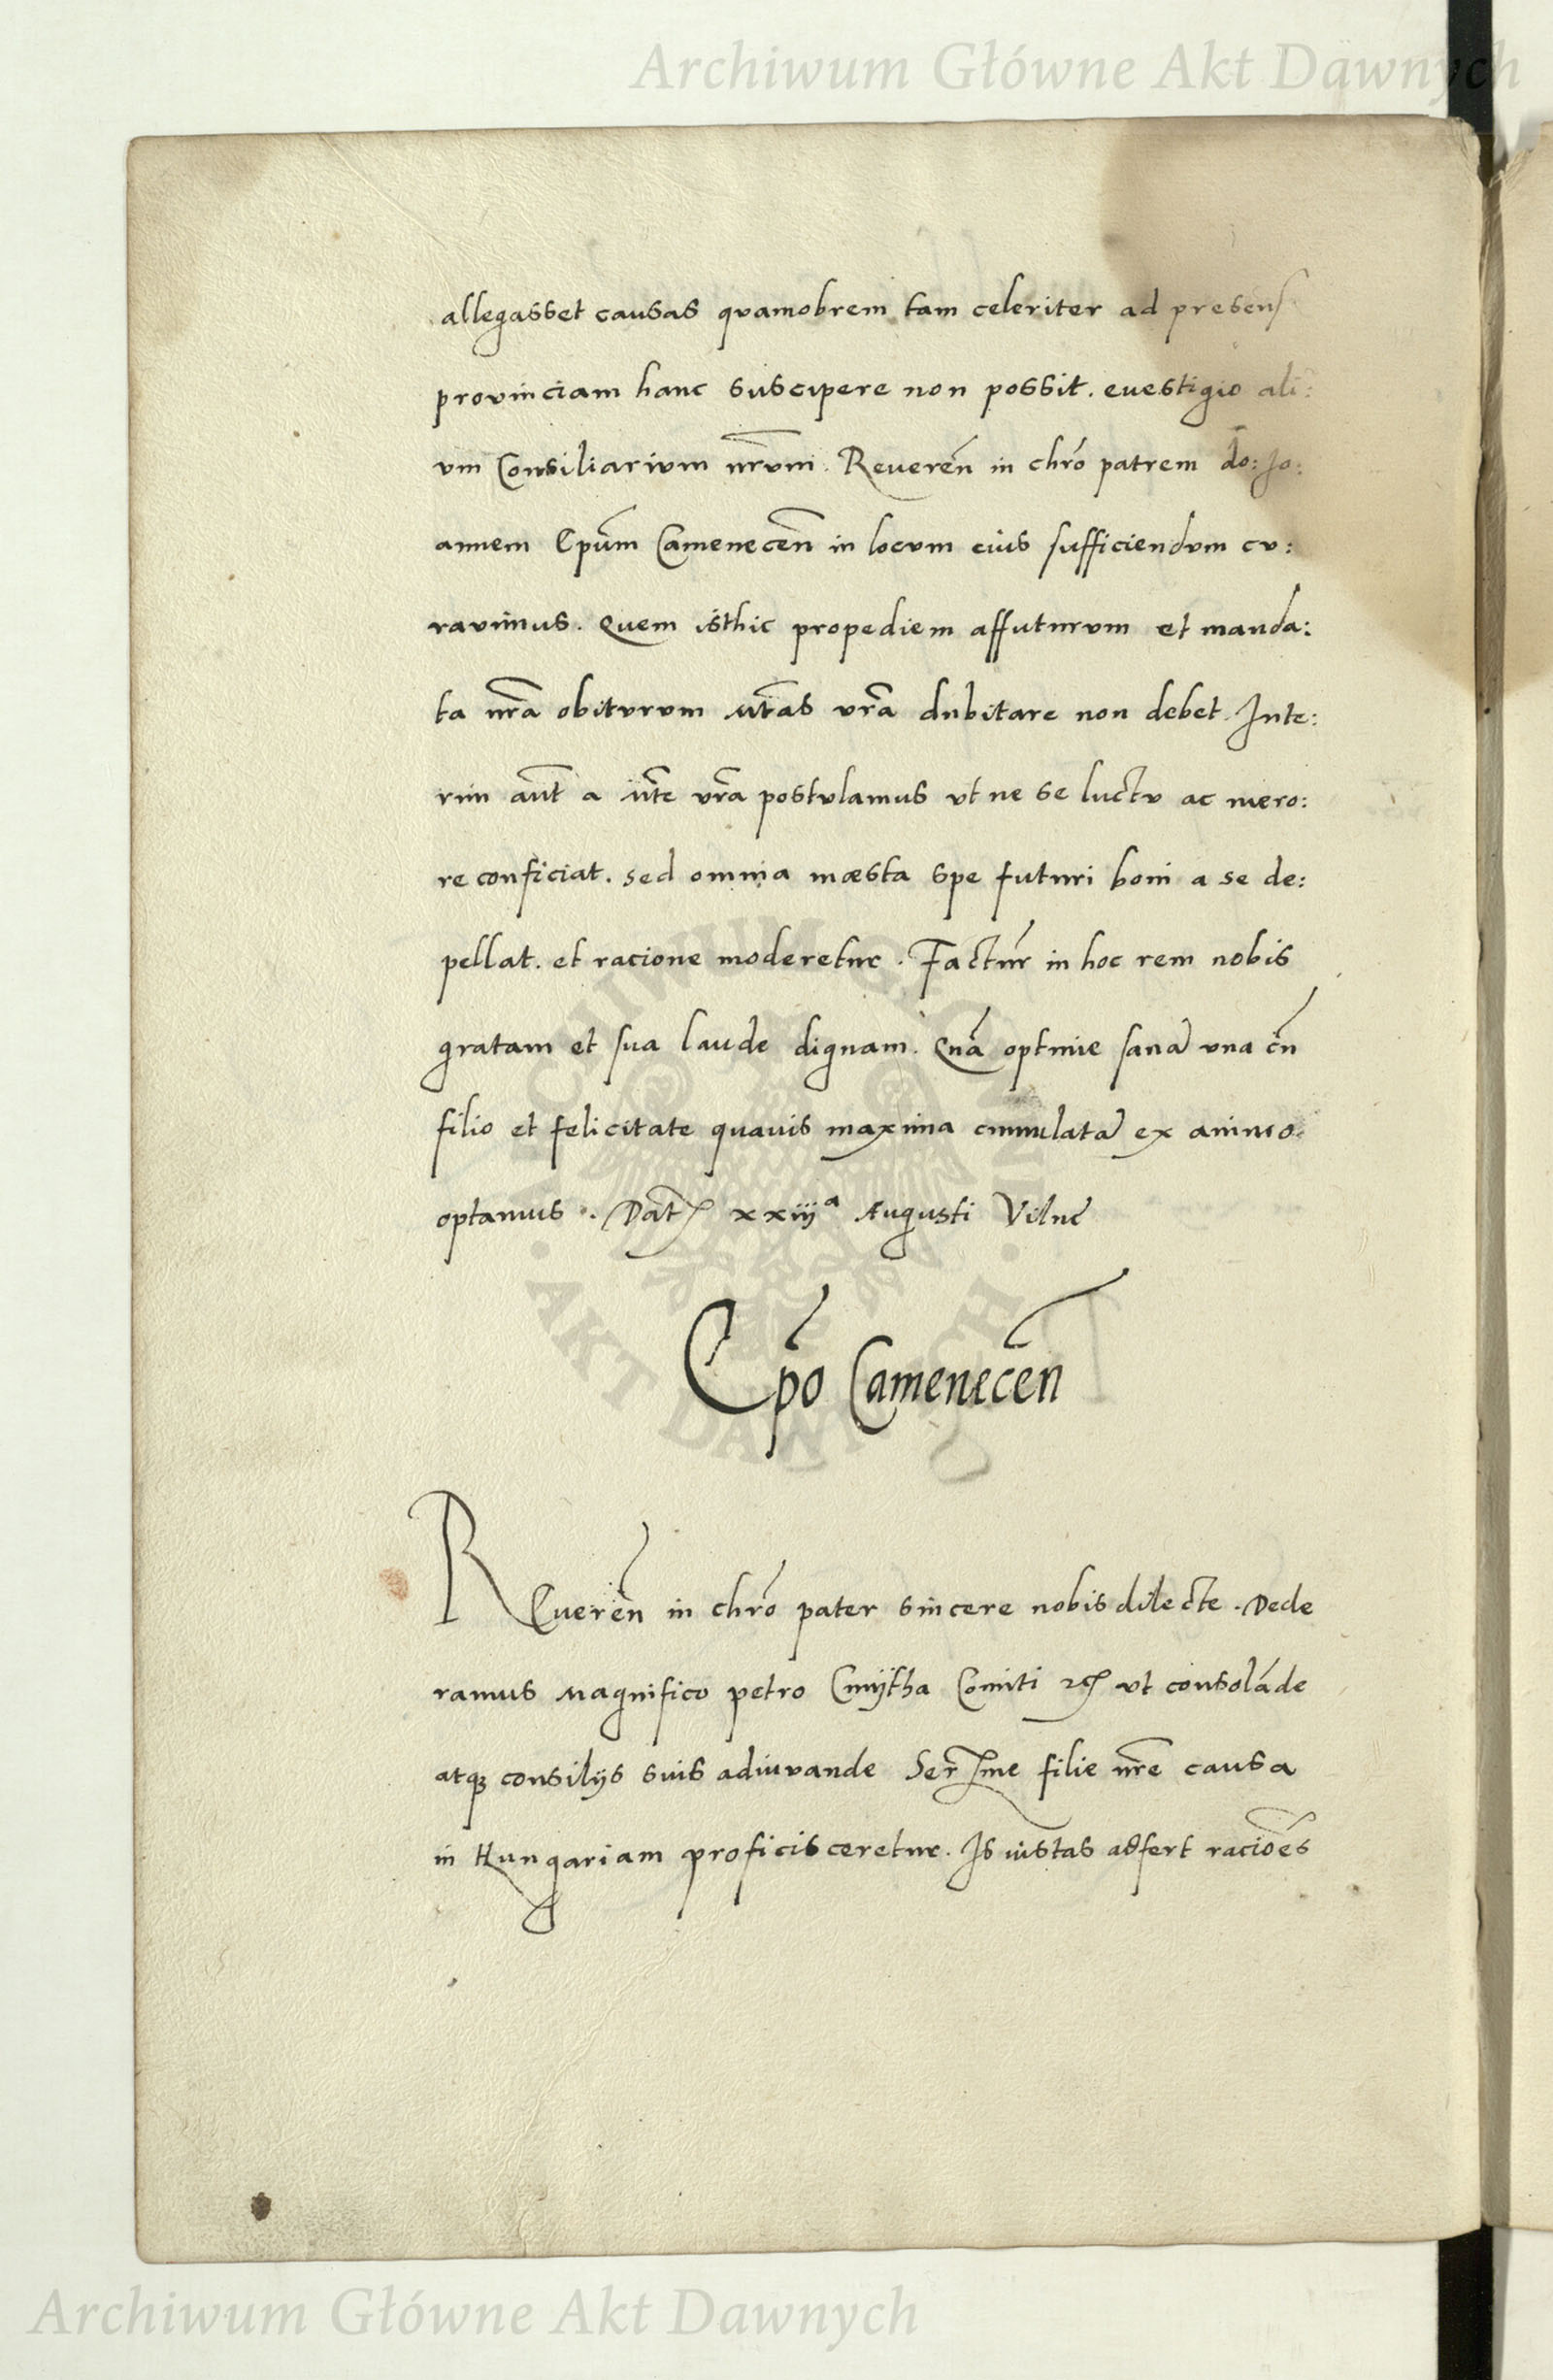 Archiwum Główne Akt Dawnych
allegasset causas quamobrem tam celeriter ad presens
provinciam hanc suscipere non possit. euestigio ali:
um Consiliarium nr̃um. Reueren̄ in chrō patrem do: Jo:
annem Ep̄um Camenecen̄ in locum eius sufficiendum cu:
rauimus. Quem isthic propediem affuturum et manda:
ta nr̃a obiturum Mt̃as vr̃a dubitare non debet. Inte:
rim aut̃ a Mt̃e vr̃a postulamus ut ne se luctu ac mero:
re conficiat. sed omnia mæsta spe futuri boni a se de:
pellat. et racione moderetur. Factur̃ in hoc rem nobis
gratam et sua laude dignam. Quā optime sanā una cū
filio et felicitate quauis maxima cumulatā ex animo
optamus. Dat̃ xxiijᵃ Augusti Vilnę
ARCHIWUM GŁÓWNE AKT DAWNYCH
Ep̄o Camenecen̄
REueren̄ in chrō pater sincere nobis dilecte. Dede
ramus Magnifico petro Cmijtha Comiti ꝛc̃ ut consolāde
atqꝫ consilijs suis adiuvande Ser̃me filie nr̃e causa
in Hungariam proficisceretur. Is iustas adfert raciōes
Archiwum Główne Akt Dawnych